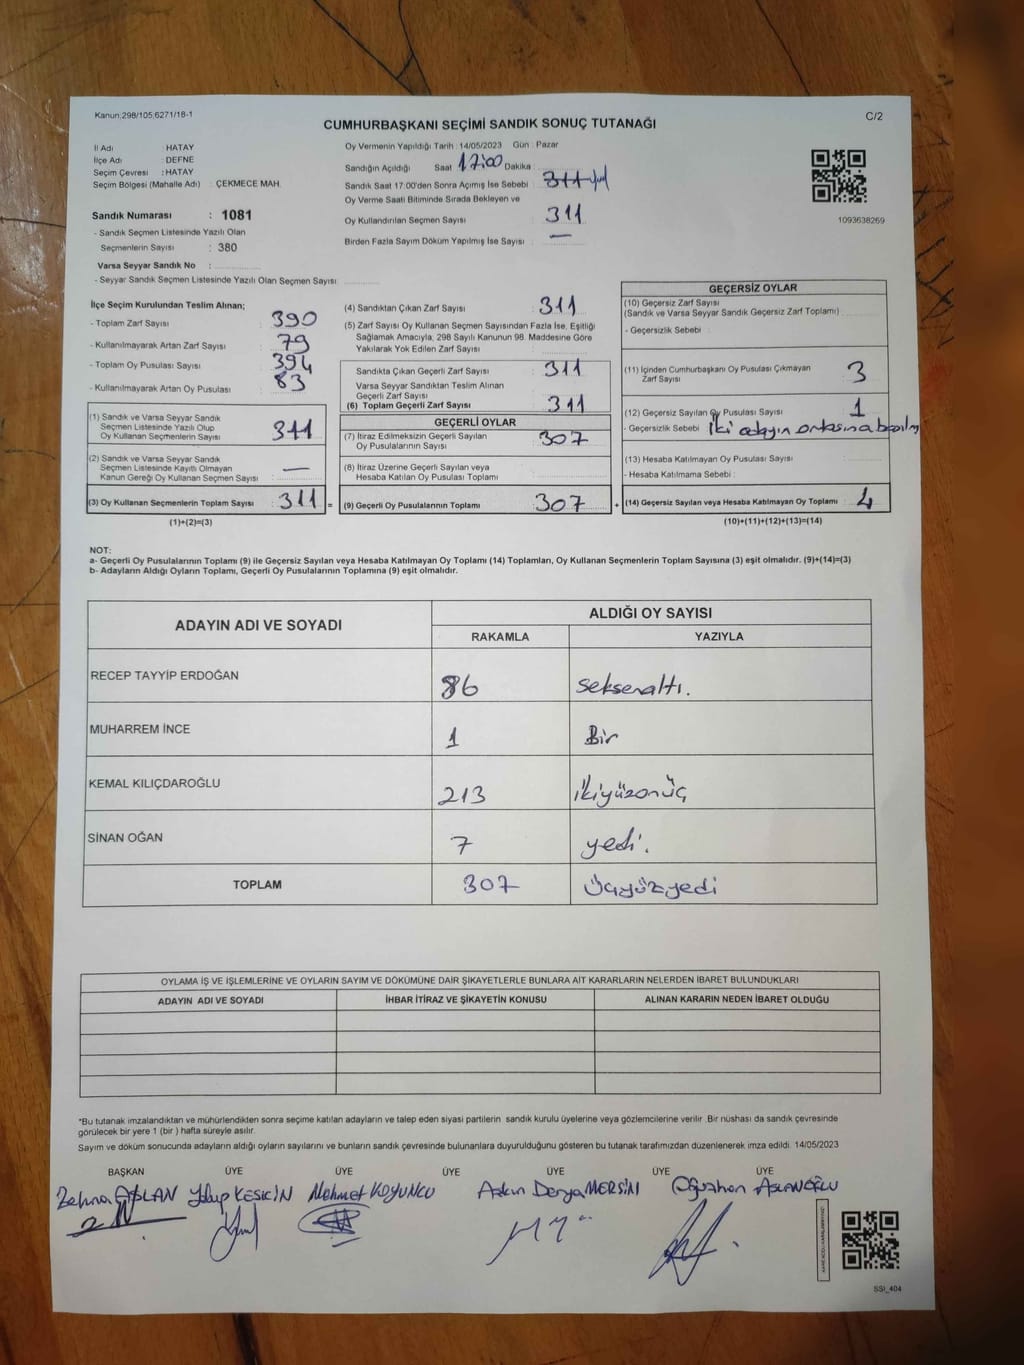 Kanun;298/105;6271/18-1
CUMHURBAŞKANI SEÇİMİ SANDIK SONUÇ TUTANAĞI
C/2
İl Adı : HATAY
İlçe Adı : DEFNE
Seçim Çevresi : HATAY
Seçim Bölgesi (Mahalle Adı) : ÇEKMECE MAH.
Sandık Numarası : 1081
- Sandık Seçmen Listesinde Yazılı Olan
Seçmenlerin Sayısı : 380
Varsa Seyyar Sandık No :
- Seyyar Sandık Seçmen Listesinde Yazılı Olan Seçmen Sayısı
Oy Vermenin Yapıldığı Tarih : 14/05/2023 Gün : Pazar
Sandığın Açıldığı Saat 17:00 Dakika :
Sandık Saat 17:00'den Sonra Açımış İse Sebebi : 311
Oy Verme Saati Bitiminde Sırada Bekleyen ve
Oy Kullandırılan Seçmen Sayısı : 311
Birden Fazla Sayım Döküm Yapılmış İse Sayısı : —
1093638269
İlçe Seçim Kurulundan Teslim Alınan;
- Toplam Zarf Sayısı : 390
- Kullanılmayarak Artan Zarf Sayısı : 79
- Toplam Oy Pusulası Sayısı : 394
- Kullanılmayarak Artan Oy Pusulası : 83
(1) Sandık ve Varsa Seyyar Sandık
Seçmen Listesinde Yazılı Olup
Oy Kullanan Seçmenlerin Sayısı : 311
(2) Sandık ve Varsa Seyyar Sandık
Seçmen Listesinde Kayıtlı Olmayan
Kanun Gereği Oy Kullanan Seçmen Sayısı : —
(3) Oy Kullanan Seçmenlerin Toplam Sayısı : 311
(1)+(2)=(3)
(4) Sandıktan Çıkan Zarf Sayısı : 311
(5) Zarf Sayısı Oy Kullanan Seçmen Sayısından Fazla İse, Eşitliği
Sağlamak Amacıyla; 298 Sayılı Kanunun 98. Maddesine Göre
Yakılarak Yok Edilen Zarf Sayısı :
Sandıkta Çıkan Geçerli Zarf Sayısı : 311
Varsa Seyyar Sandıktan Teslim Alınan
Geçerli Zarf Sayısı
(6) Toplam Geçerli Zarf Sayısı : 311
GEÇERLİ OYLAR
(7) İtiraz Edilmeksizin Geçerli Sayılan
Oy Pusulalarının Sayısı : 307
(8) İtiraz Üzerine Geçerli Sayılan veya
Hesaba Katılan Oy Pusulası Toplamı :
= (9) Geçerli Oy Pusulalarının Toplamı : 307
GEÇERSİZ OYLAR
(10) Geçersiz Zarf Sayısı
(Sandık ve Varsa Seyyar Sandık Geçersiz Zarf Toplamı) :
- Geçersizlik Sebebi :
(11) İçinden Cumhurbaşkanı Oy Pusulası Çıkmayan
Zarf Sayısı : 3
(12) Geçersiz Sayılan Oy Pusulası Sayısı : 1
- Geçersizlik Sebebi : İki adayın ortasına
(13) Hesaba Katılmayan Oy Pusulası Sayısı :
- Hesaba Katılmama Sebebi :
+ (14) Geçersiz Sayılan veya Hesaba Katılmayan Oy Toplamı : 4
(10)+(11)+(12)+(13)=(14)
NOT:
a- Geçerli Oy Pusulalarının Toplamı (9) ile Geçersiz Sayılan veya Hesaba Katılmayan Oy Toplamı (14) Toplamları, Oy Kullanan Seçmenlerin Toplam Sayısına (3) eşit olmalıdır. (9)+(14)=(3)
b- Adayların Aldığı Oyların Toplamı, Geçerli Oy Pusulalarının Toplamına (9) eşit olmalıdır.
ADAYIN ADI VE SOYADI
ALDIĞI OY SAYISI
RAKAMLA YAZIYLA
RECEP TAYYİP ERDOĞAN 86 seksenaltı.
MUHARREM İNCE 1 Bir
KEMAL KILIÇDAROĞLU 213 ikiyüzonüç
SİNAN OĞAN 7 yedi.
TOPLAM 307 üçyüzyedi
OYLAMA İŞ VE İŞLEMLERİNE VE OYLARIN SAYIM VE DÖKÜMÜNE DAİR ŞİKAYETLERLE BUNLARA AİT KARARLARIN NELERDEN İBARET BULUNDUKLARI
ADAYIN ADI VE SOYADI İHBAR İTİRAZ VE ŞİKAYETİN KONUSU ALINAN KARARIN NEDEN İBARET OLDUĞU
*Bu tutanak imzalandıktan ve mühürlendikten sonra seçime katılan adayların ve talep eden siyasi partilerin sandık kurulu üyelerine veya gözlemcilerine verilir. Bir nüshası da sandık çevresinde
görülecek bir yere 1 (bir ) hafta süreyle asılır.
Sayım ve döküm sonucunda adayların aldığı oyların sayılarını ve bunların sandık çevresinde bulunanlara duyurulduğunu gösteren bu tutanak tarafımızdan düzenlenerek imza edildi. 14/05/2023
BAŞKAN ÜYE ÜYE ÜYE ÜYE ÜYE ÜYE
Zehra ASLAN Yakup KESKİN Mehmet KOYUNCU Aşkın Derya MERSİN Oğuzhan ASLANOĞLU
SSI_404